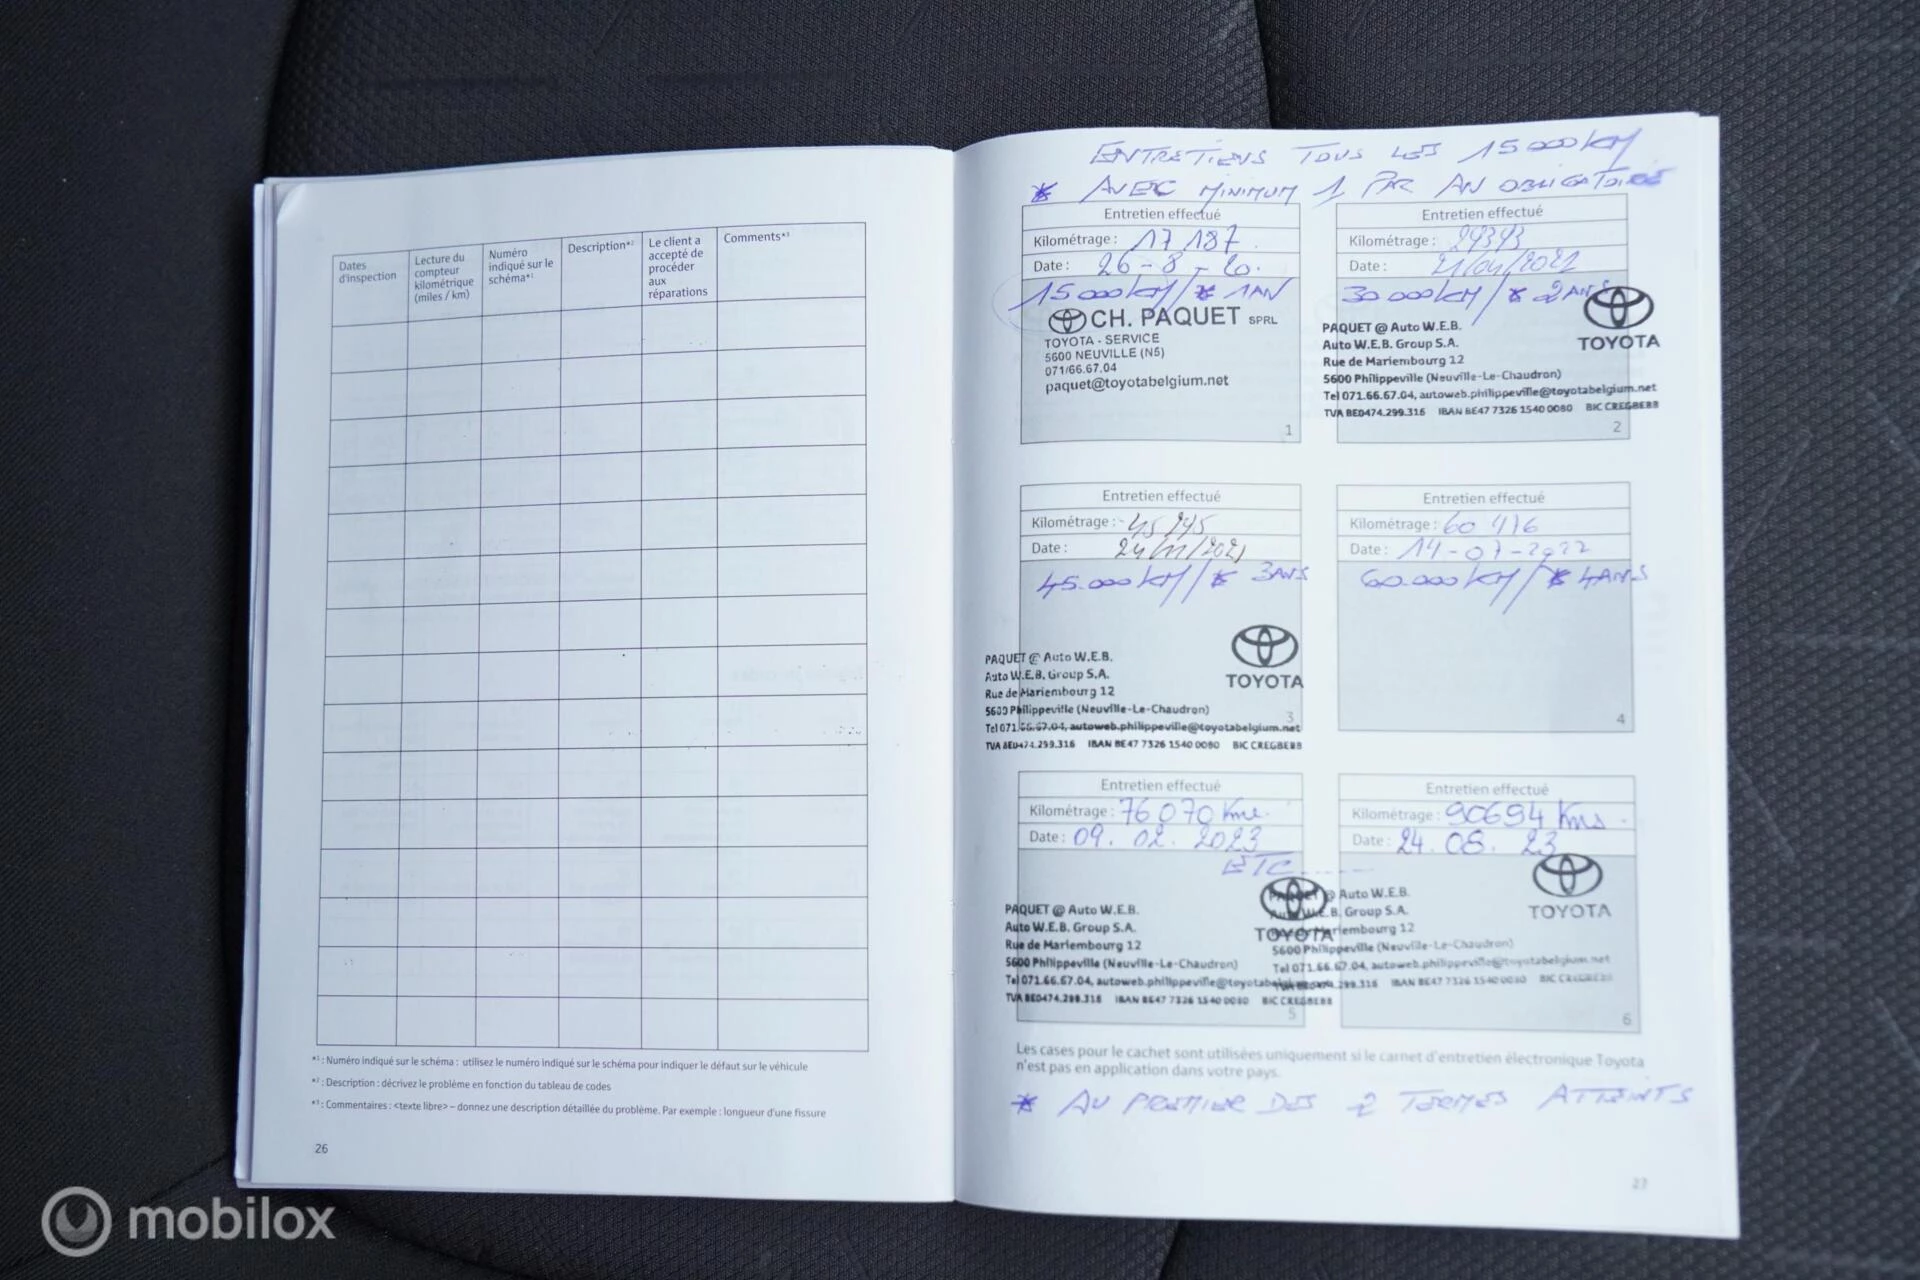 Dates d'inspection
Lecture du compteur kilométrique (miles / km)
Numéro indiqué sur le schéma*1
Description*2
Le client a accepté de procéder aux réparations
Comments*3
*1 : Numéro indiqué sur le schéma : utilisez le numéro indiqué sur le schéma pour indiquer le défaut sur le véhicule
*2 : Description : décrivez le problème en fonction du tableau de codes
*3 : Commentaires : <texte libre> – donnez une description détaillée du problème. Par exemple : longueur d'une fissure
26
ENTRETIENS TOUS LES 15000KM
* AVEC MINIMUM 1 PAR AN OBLIGATOIRE
Entretien effectué
Kilométrage : 17 187
Date : 26-8-20.
15000KM/* 1AN
CH. PAQUET SPRL
TOYOTA - SERVICE
5600 NEUVILLE (N5)
071/66.67.04
paquet@toyotabelgium.net
1
Entretien effectué
Kilométrage : 29393
Date : 21/04/2021
30000KM/* 2ANS
TOYOTA
PAQUET @ Auto W.E.B.
Auto W.E.B. Group S.A.
Rue de Mariembourg 12
5600 Philippeville (Neuville-Le-Chaudron)
Tel 071.66.67.04, autoweb.philippeville@toyotabelgium.net
TVA BE0474.299.316 IBAN BE47 7326 1540 0080 BIC CREGBEBB
2
Entretien effectué
Kilométrage : 45245
Date : 24/11/2021
45.000KM/* 3ANS
TOYOTA
PAQUET @ Auto W.E.B.
Auto W.E.B. Group S.A.
Rue de Mariembourg 12
5600 Philippeville (Neuville-Le-Chaudron)
Tel 071.66.67.04, autoweb.philippeville@toyotabelgium.net
TVA BE0474.299.316 IBAN BE47 7326 1540 0080 BIC CREGBEBB
3
Entretien effectué
Kilométrage : 60 416
Date : 14-07-2022
60.000KM/* 4ANS
4
Entretien effectué
Kilométrage : 76070 Kms.
Date : 09. 02. 2023
ETC......
TOYOTA
PAQUET @ Auto W.E.B.
Auto W.E.B. Group S.A.
Rue de Mariembourg 12
5600 Philippeville (Neuville-Le-Chaudron)
Tel 071.66.67.04, autoweb.philippeville@toyotabelgium.net
TVA BE0474.299.316 IBAN BE47 7326 1540 0080 BIC CREGBEBB
5
Entretien effectué
Kilométrage : 90694 Kms.
Date : 24. 08. 23
TOYOTA
PAQUET @ Auto W.E.B.
Auto W.E.B. Group S.A.
Rue de Mariembourg 12
5600 Philippeville (Neuville-Le-Chaudron)
Tel 071.66.67.04, autoweb.philippeville@toyotabelgium.net
TVA BE0474.299.316 IBAN BE47 7326 1540 0080 BIC CREGBEBB
6
Les cases pour le cachet sont utilisées uniquement si le carnet d'entretien électronique Toyota
n'est pas en application dans votre pays.
* AU PREMIER DES 2 TERMES ATTEINTS
27
mobilox